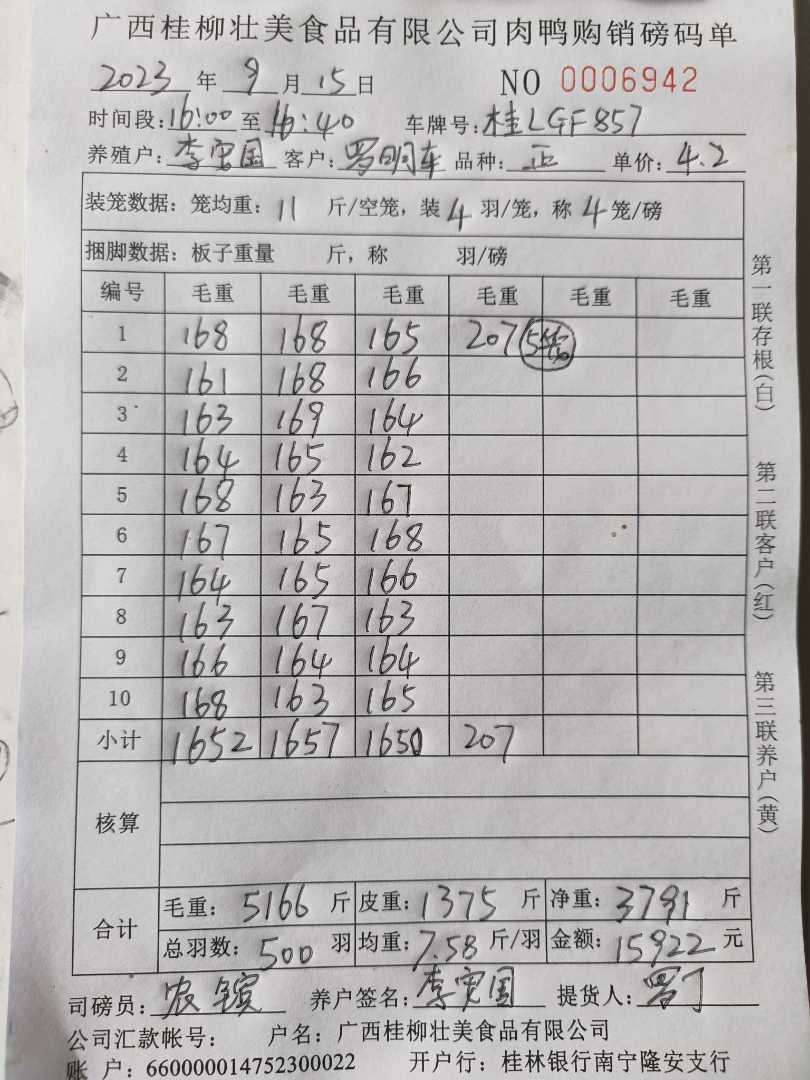 广西桂柳壮美食品有限公司肉鸭购销磅码单
2023 年 9 月 15 日 NO 0006942
时间段:16:00 至 16:40 车牌号:桂LGF857
养殖户:李寅国 客户:罗明车 品种:正 单价:4.2
装笼数据:笼均重:11 斤/空笼,装 4 羽/笼,称 4 笼/磅
捆脚数据:板子重量 斤,称 羽/磅
编号 毛重 毛重 毛重 毛重 毛重 毛重
1 168 168 165 207 5笼
2 161 168 166
3 163 169 164
4 164 165 162
5 168 163 167
6 167 165 168
7 164 165 166
8 163 167 163
9 166 164 164
10 168 163 165
小计 1652 1657 1650 207
核算
合计
毛重:5166 斤 皮重:1375 斤 净重:3791 斤
总羽数:500 羽 均重:7.58 斤/羽 金额:15922 元
司磅员:农 养户签名:李寅国 提货人:罗丁
公司汇款帐号: 户名:广西桂柳壮美食品有限公司
账 户:660000014752300022 开户行:桂林银行南宁隆安支行
第一联存根(白) 第二联客户(红) 第三联养户(黄)